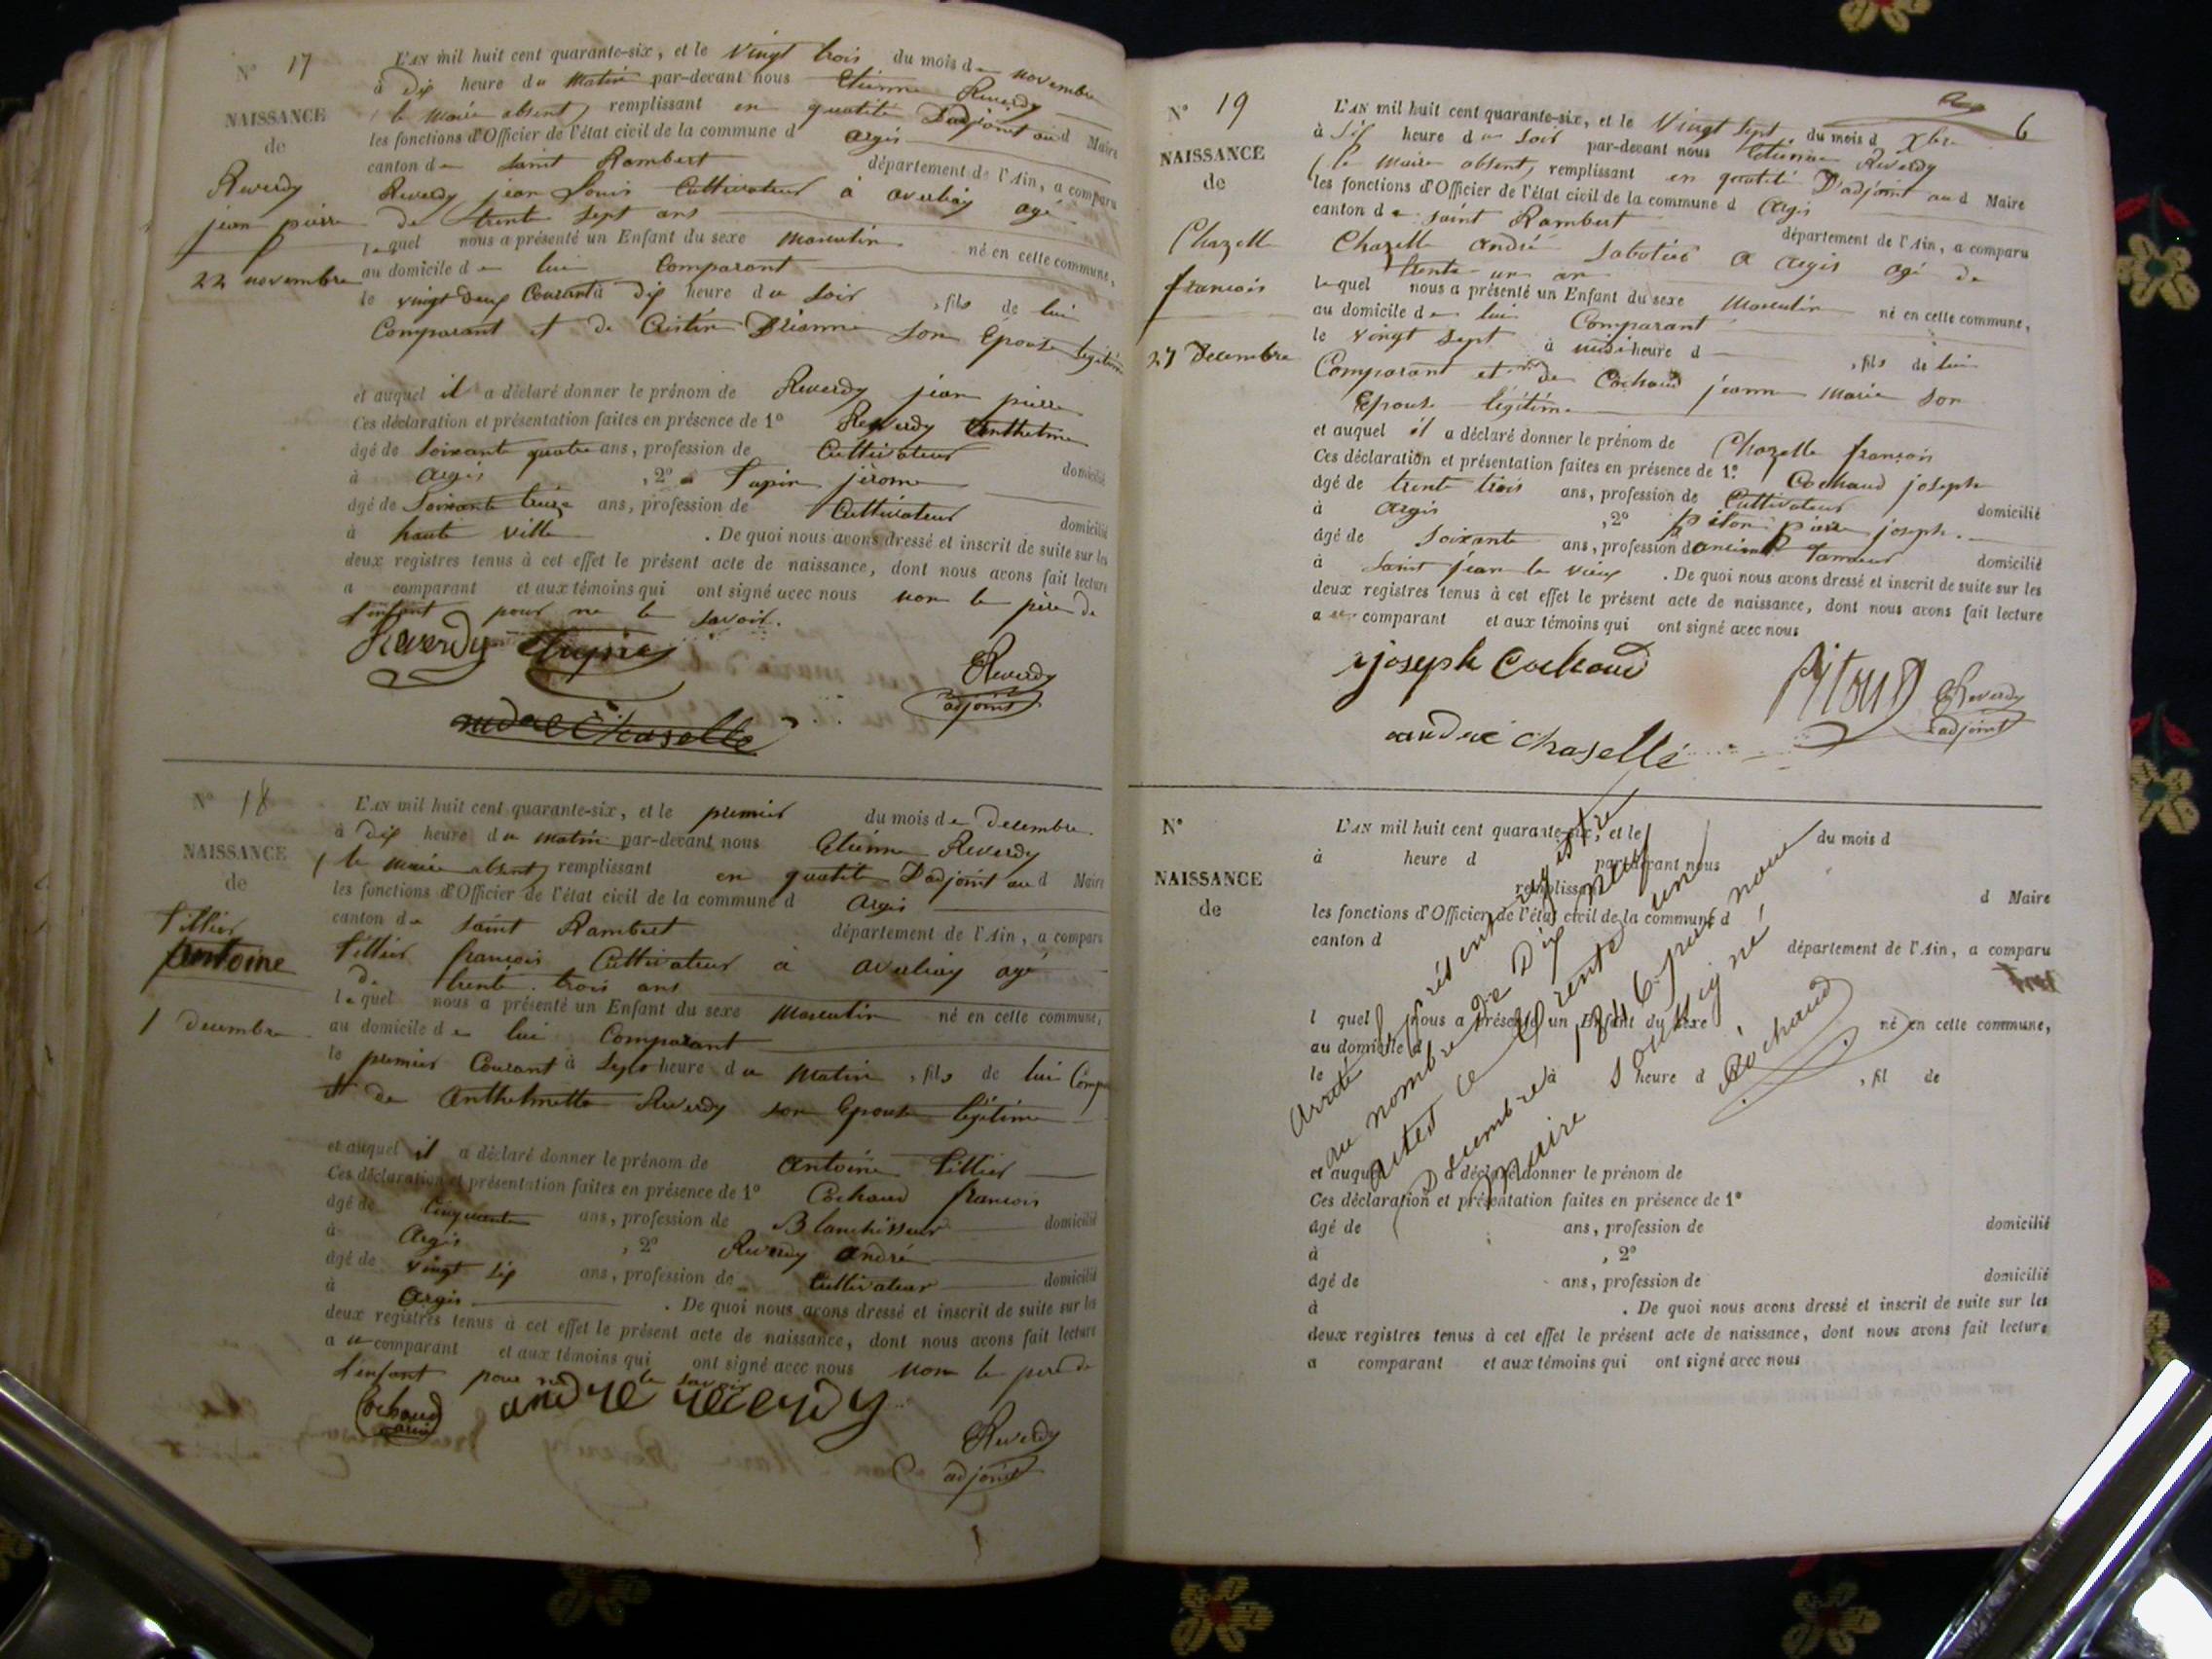 N° 17
NAISSANCE
de
Reverdy
jean pierre
22 novembre
L'AN mil huit cent quarante-six, et le vingt trois du mois de novembre
à dix heure du matin par-devant nous Etienne Reverdy
(le maire absent) remplissant en qualité D'adjoint au d Maire
les fonctions d'Officier de l'état civil de la commune d argis
canton de saint Rambert département de l'Ain, a comparu
Reverdy jean Louis Cultivateur à agé
de trente sept ans
lequel nous a présenté un Enfant du sexe Masculin né en cette commune,
au domicile de lui Comparant
le vingt deux Courant à dix heure du soir , fils de lui
Comparant et de son Epouse legitime
et auquel il a déclaré donner le prénom de Reverdy jean pierre
Ces déclaration et présentation faites en présence de 1° Reverdy Anthelme
âgé de soixante quatre ans, profession de Cultivateur domicilié
à argis , 2° jérome
âgé de soixante treize ans, profession de Cultivateur domicilié
à haute ville . De quoi nous avons dressé et inscrit de suite sur les
deux registres tenus à cet effet le présent acte de naissance, dont nous avons fait lecture
a comparant et aux témoins qui ont signé avec nous non le père de
l'enfant pour ne le savoir.
Reverdy
Reverdy
adjoint
andre Chaselle
N° 18
NAISSANCE
de
Tillier
Antoine
1 decembre
L'AN mil huit cent quarante-six, et le premier du mois de decembre
à dix heure du matin par-devant nous Etienne Reverdy
(le maire absent) remplissant en qualité D'adjoint au d Maire
les fonctions d'Officier de l'état civil de la commune d Argis
canton de saint Rambert département de l'Ain, a comparu
Tillier françois Cultivateur à agé
de trente trois ans
lequel nous a présenté un Enfant du sexe Masculin né en cette commune,
au domicile de lui Comparant
le premier Courant à heure du Matin , fils de lui
et de Anthelmette Reverdy son Epouse légitime
et auquel il a déclaré donner le prénom de Antoine Tillier
Ces déclaration et présentation faites en présence de 1° Cochaud françois
âgé de Cinquante ans, profession de Blanchisseur domicilié
à Argis , 2° Reverdy André
âgé de vingt six ans, profession de Cultivateur domicilié
à Argis . De quoi nous avons dressé et inscrit de suite sur la
deux registres tenus à cet effet le présent acte de naissance, dont nous avons fait lecture
a u comparant et aux témoins qui ont signé avec nous non le père de
l'enfant pour ne le savoir
Cochaud
andre reverdy
Reverdy
adjoint
6
N° 19
NAISSANCE
de
Chazelle
francois
27 Decembre
L'AN mil huit cent quarante-six, et le Vingt sept du mois d Xbre
à six heure du soir par-devant nous Etienne Reverdy
(le Maire absent) remplissant en qualité D'adjoint au d Maire
les fonctions d'Officier de l'état civil de la commune d Argis
canton de saint Rambert département de l'Ain, a comparu
Chazelle André Sabotier à Argis agé de
trente un an
lequel nous a présenté un Enfant du sexe Masculin né en cette commune,
au domicile de lui Comparant
le vingt sept à midi heure d , fils de lui
Comparant et de Cochaud jeanne Marie son
Epouse légitime
et auquel il a déclaré donner le prénom de Chazelle françois
Ces déclaration et présentation faites en présence de 1° Cochaud joseph
âgé de trente trois ans, profession de Cultivateur domicilié
à Argis , 2° piton pierre joseph.
âgé de soixante ans, profession d ancien Tanneur domicilié
à Saint jean le vieux . De quoi nous avons dressé et inscrit de suite sur les
deux registres tenus à cet effet le présent acte de naissance, dont nous avons fait lecture
a comparant et aux témoins qui ont signé avec nous
joseph Cochaud
Reverdy
adjoint
andré chasellé
N°
NAISSANCE
de
L'AN mil huit cent quarante-six, et le du mois d
à heure d par-devant nous
remplissant d Maire
les fonctions d'Officier de l'état civil de la commune d
canton d département de l'Ain, a comparu
l quel nous a présenté un Enfant du sexe né en cette commune,
au domicile d
le à heure d , fil de
et auquel a déclaré donner le prénom de
Ces déclaration et présentation faites en présence de 1°
âgé de ans, profession de domicilié
à , 2°
âgé de ans, profession de domicilié
à . De quoi nous avons dressé et inscrit de suite sur les
deux registres tenus à cet effet le présent acte de naissance, dont nous avons fait lecture
a comparant et aux témoins qui ont signé avec nous
Arreté le présent registre
au nombre de Dix neuf
actes ce trente un
Decembre 1846 par nous
maire soussigné
Cochaud